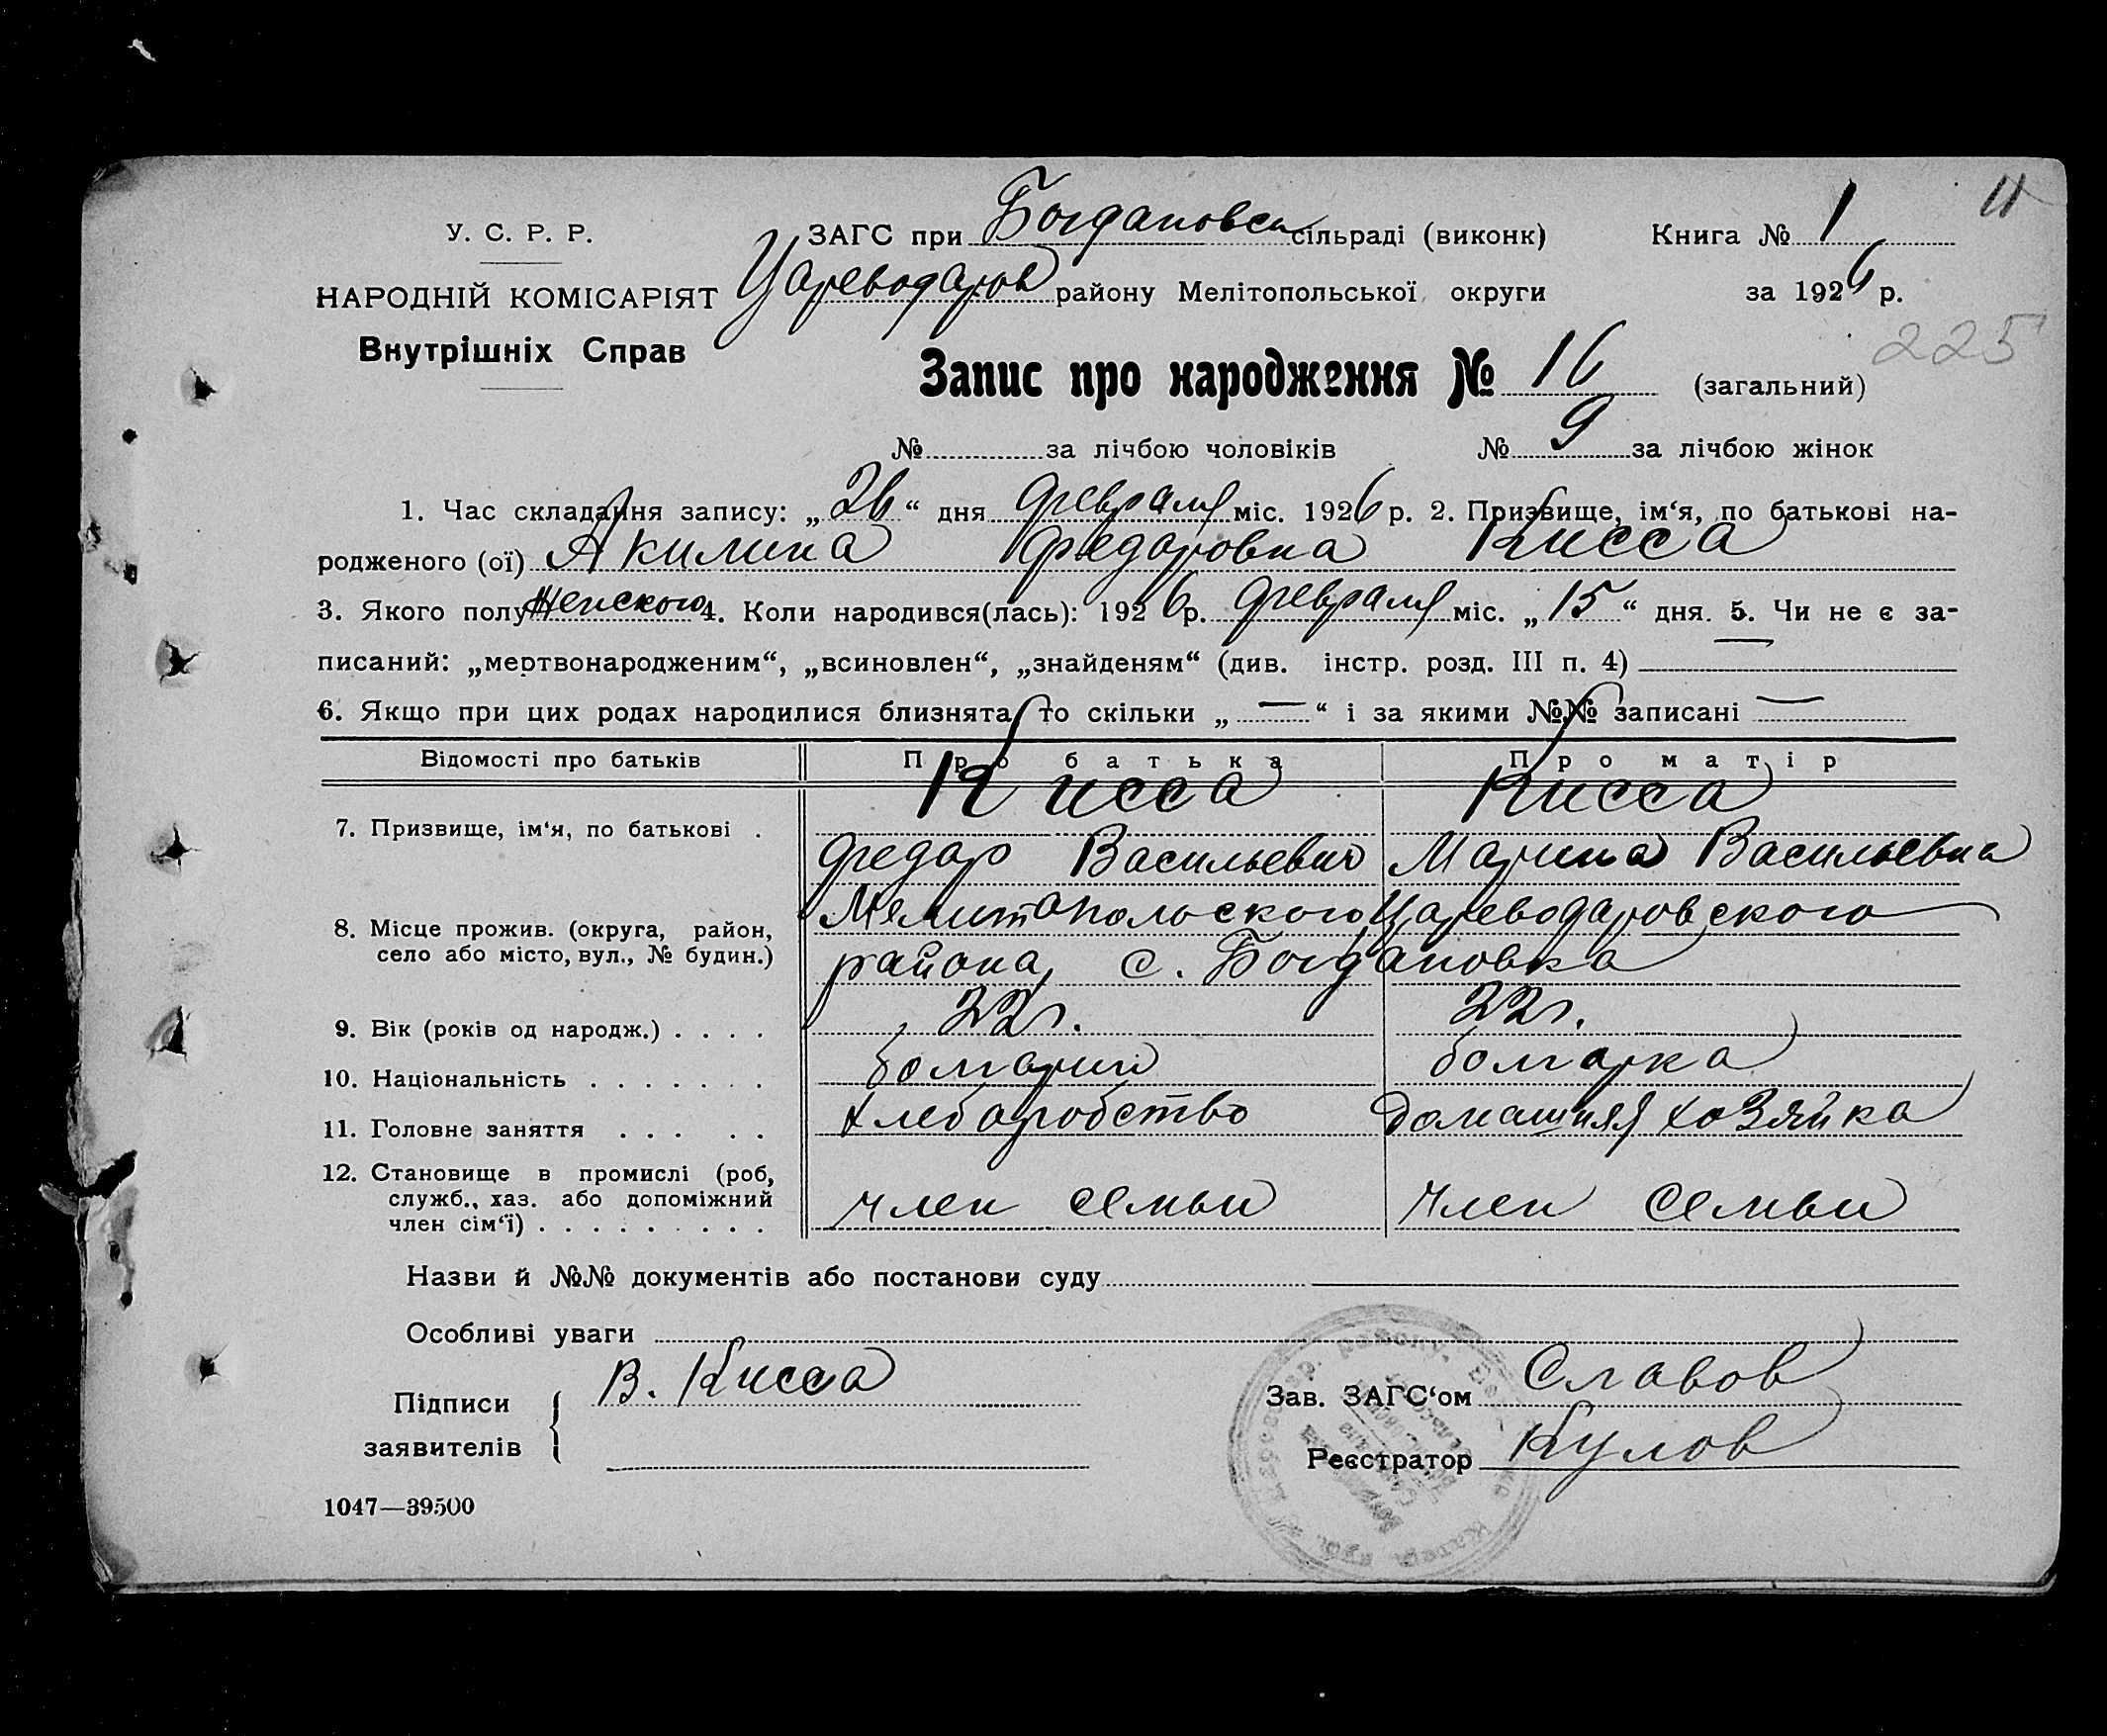 11
У. С. Р. Р.
ЗАГС при Богдановск сільраді (виконк)
Книга № 1
НАРОДНІЙ КОМІСАРІЯТ
Цареводаров району Мелітопольської округи
за 1926 р.
Внутрішніх Справ
225
Запис про народження № 16 (загальний)
№ за лічбою чоловіків № 9 за лічбою жінок
1. Час складання запису: „26“ дня февраля міс. 1926 р. 2. Призвище, ім‘я, по батькові на-
родженого (ої) Акилина Федаровна Кисса
3. Якого полу Женского 4. Коли народився(лась): 1926 р. февраля міс. „15“ дня. 5. Чи не є за-
писаний: „мертвонародженим“, „всиновлен“, „знайденям“ (див. інстр. розд. III п. 4) —
6. Якщо при цих родах народилися близнята, то скільки „—“ і за якими №№ записані —
Відомості про батьків Про батька Про матір
7. Призвище, ім‘я, по батькові . Кисса Кисса
Федар Васильевич Марина Васильевна
8. Місце прожив. (округа, район, Мелитапольского, Цареводаровского
село або місто, вул., № будин.) района, с. Богдановка
9. Вік (років од народж.) . . . . 22 г. 22 г.
10. Національність . . . . . . . болгарин болгарка
11. Головне заняття . . . . . хлебаробство Домашняя хозяйка
12. Становище в промислі (роб,
служб., хаз. або допоміжний член семьи член семьи
член сім‘ї) . . . . . . . . .
Назви й №№ документів або постанови суду
Особливі уваги
Підписи
заявителів
В. Кисса
Зав. ЗАГС‘ом Славов
Реєстратор Кулов
1047—39500